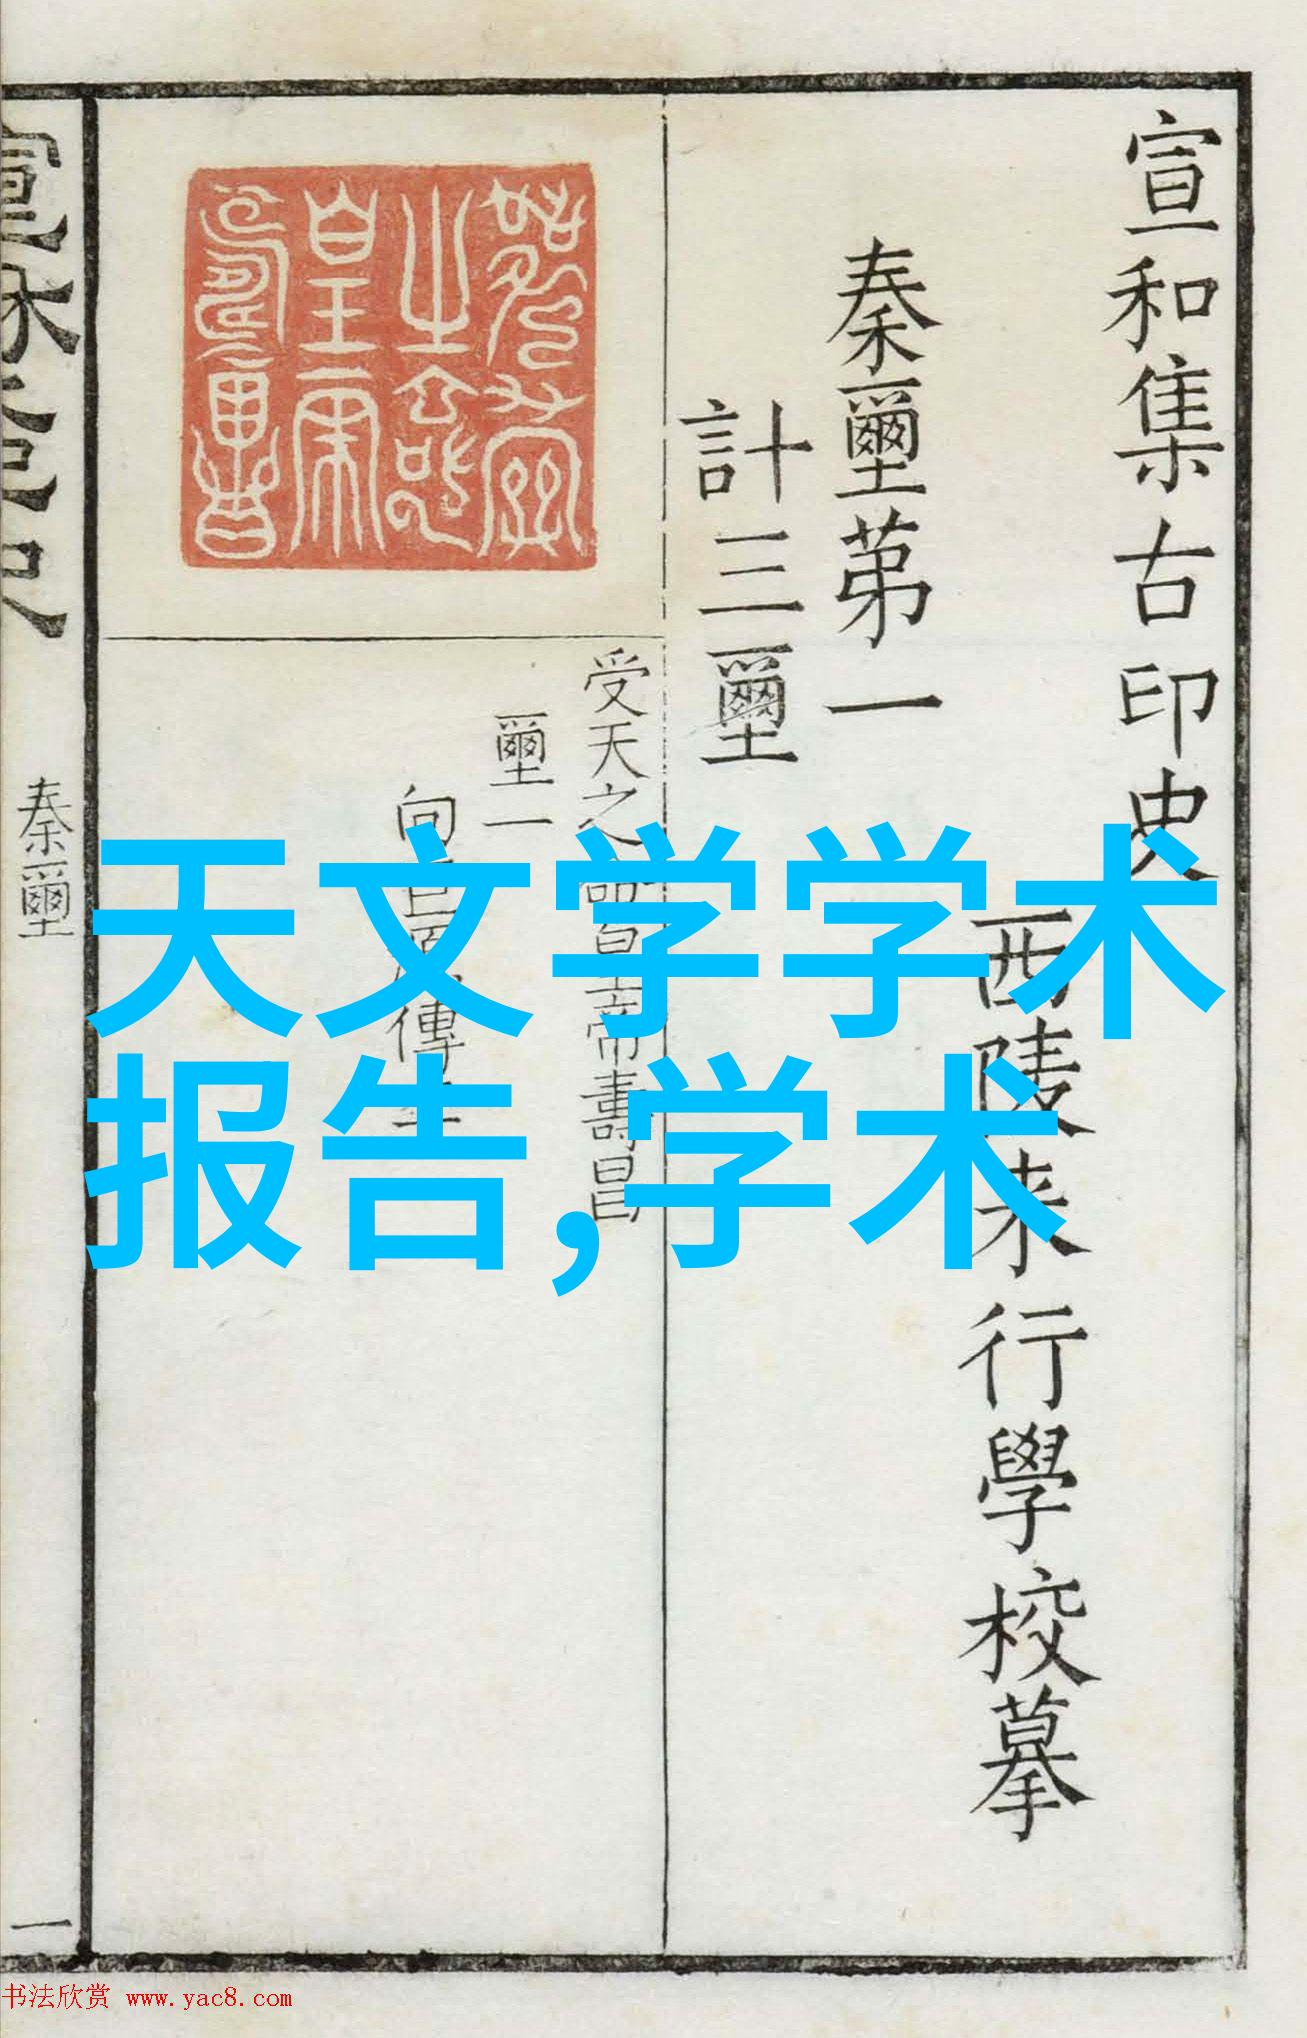 宣和集古印史
西陵来行學校摹
秦璽苐一
計三璽
受天之命皇帝壽昌
璽一
向巨源傳本
秦璽
一
天文学学术
报告,学术
书法欣赏 www.yac8.com